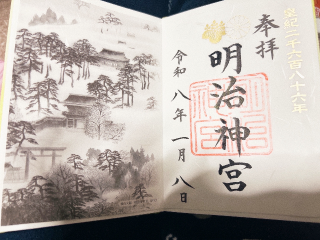 皇紀二千六百八十六年
奉拝
明治神宮
令和八年一月八日